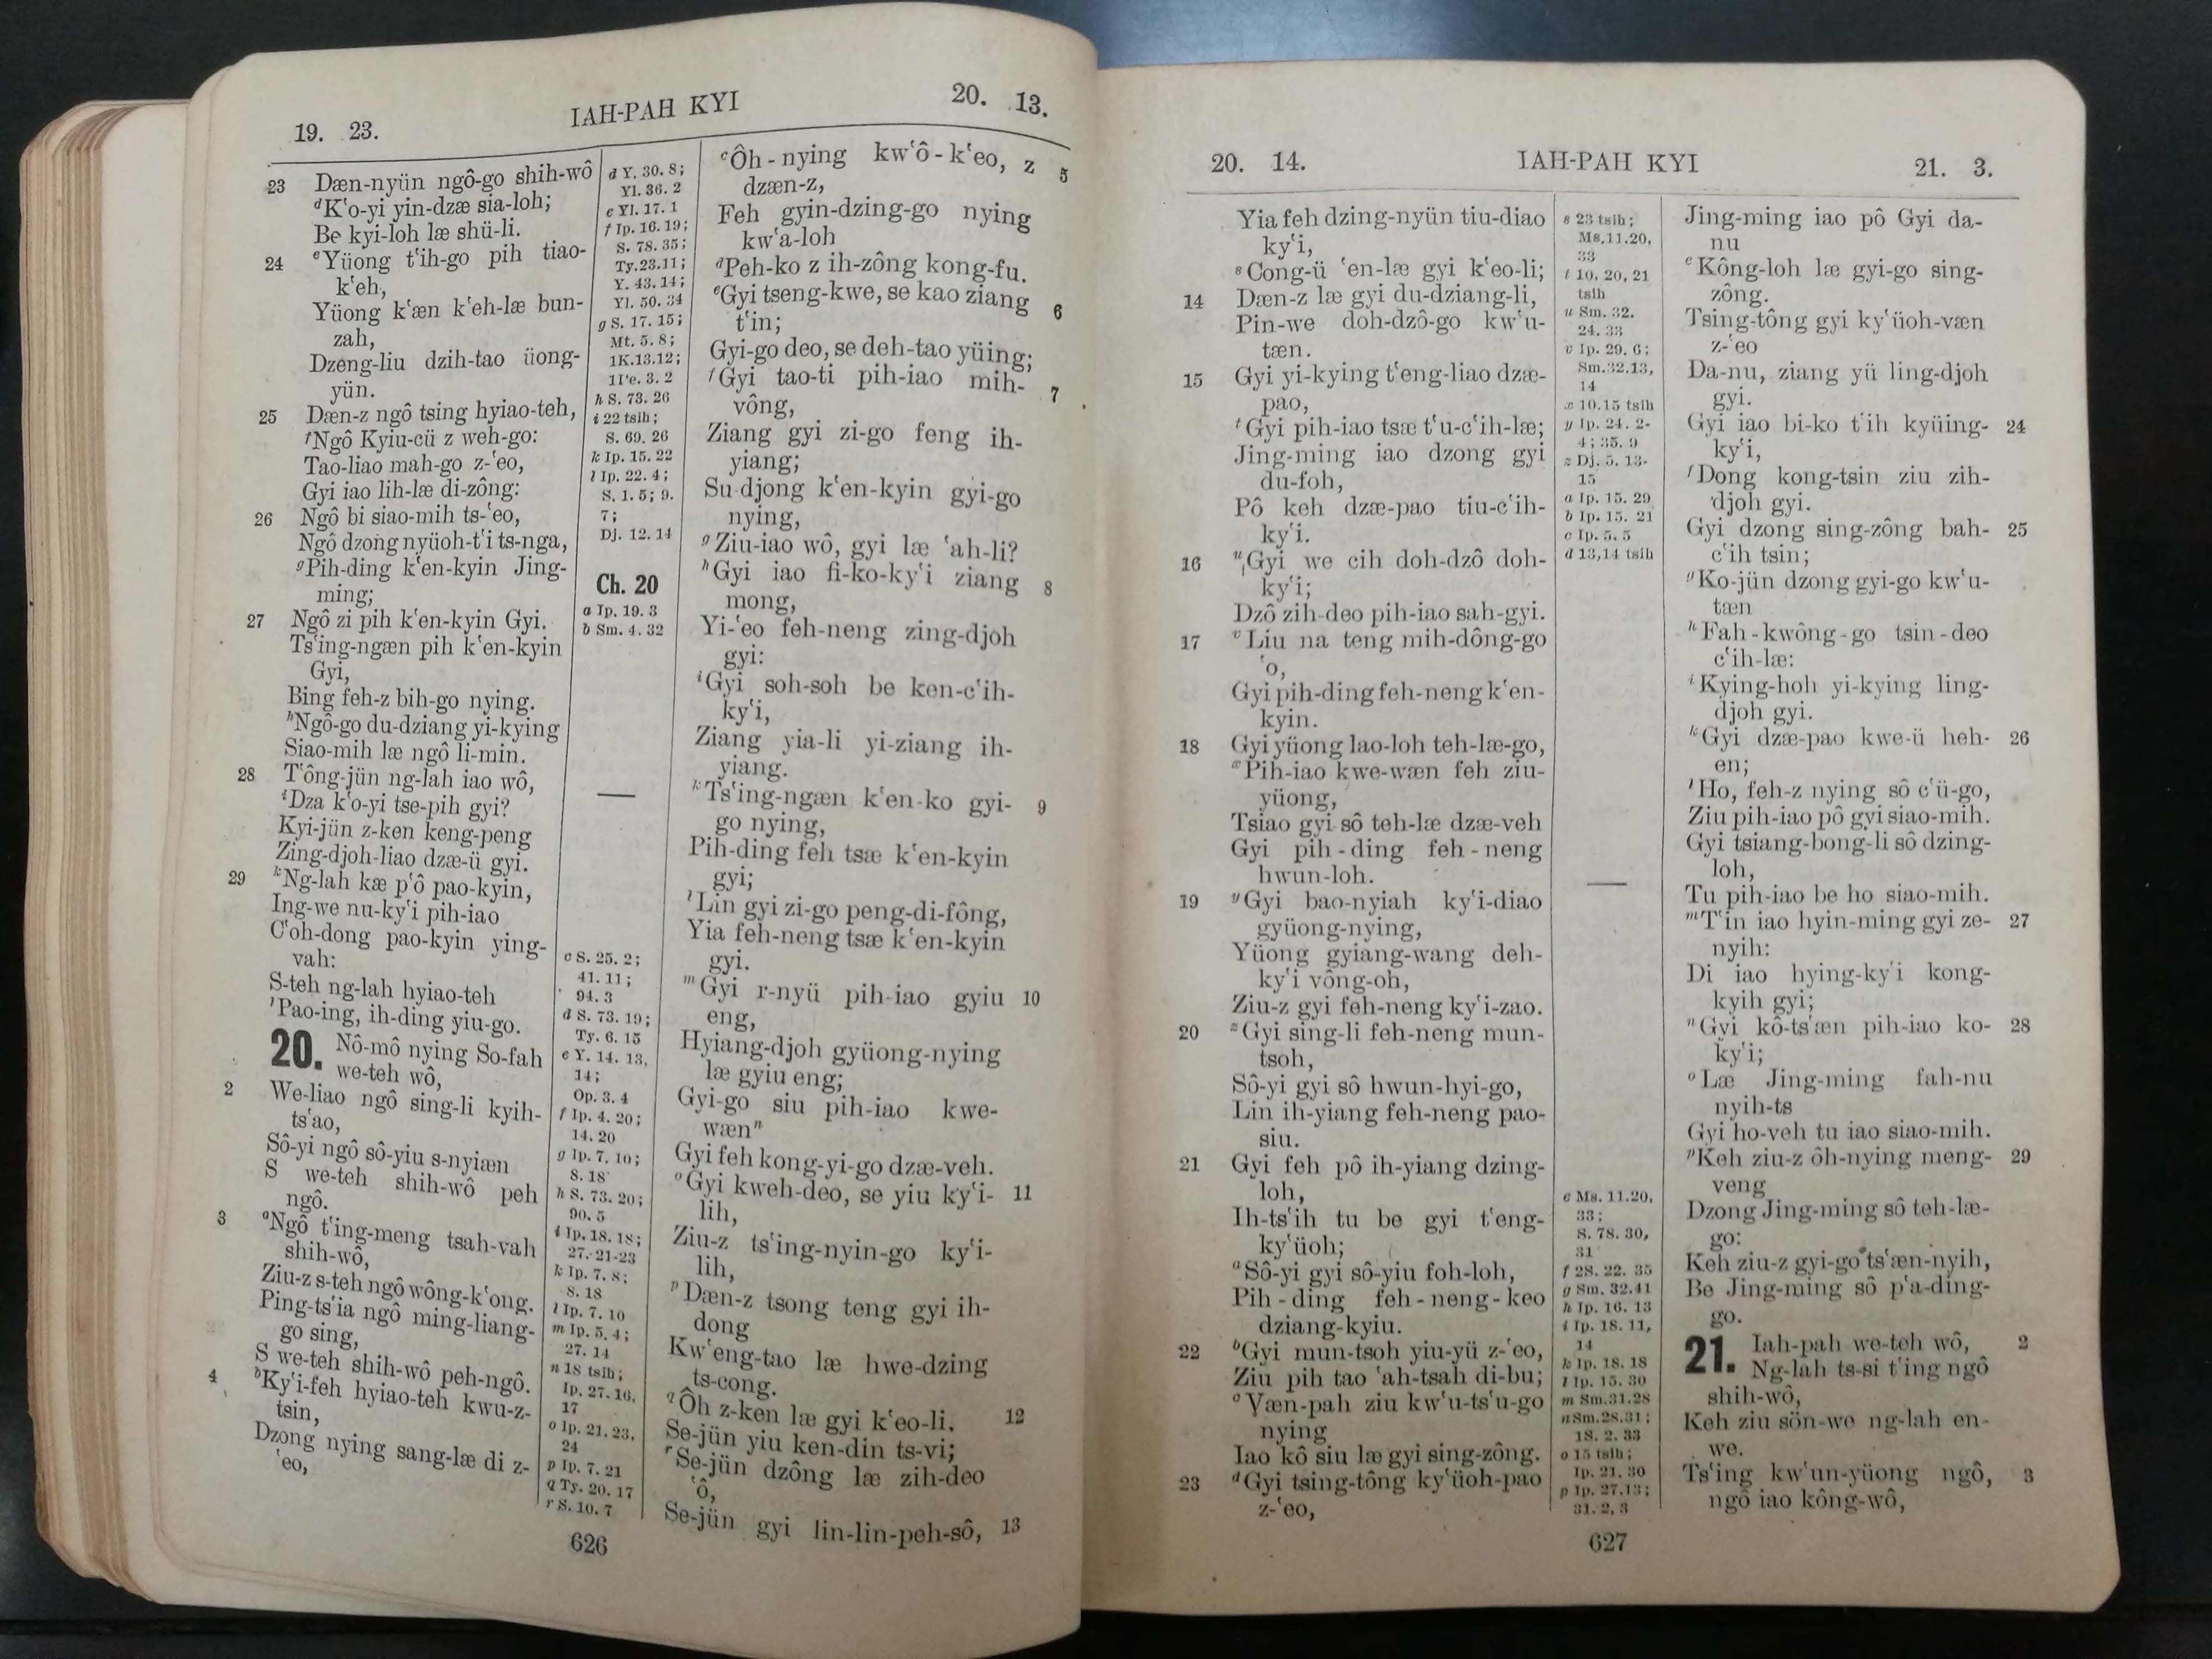 19. 23.
IAH-PAH KYI
20. 13.
23 Dæn-nyün ngô-go shih-wô
dK‘o-yi yin-dzæ sia-loh;
Be kyi-loh læ shü-li.
24 eYüong t‘ih-go pih tiao-
k‘eh,
Yüong k‘æn k‘eh-læ bun-
zah,
Dzeng-liu dzih-tao üong-
yün.
25 Dæn-z ngô tsing hyiao-teh,
fNgô Kyiu-cü z weh-go:
Tao-liao mah-go z-‘eo,
Gyi iao lih-læ di-zông:
26 Ngô bi siao-mih ts-‘eo,
Ngô dzong nyüoh-t‘i ts-nga,
gPih-ding k‘en-kyin Jing-
ming;
27 Ngô zi pih k‘en-kyin Gyi.
Ts‘ing-ngæn pih k‘en-kyin
Gyi,
Bing feh-z bih-go nying.
hNgô-go du-dziang yi-kying
Siao-mih læ ngô li-min.
28 T‘ông-jün ng-lah iao wô,
iDza k‘o-yi tse-pih gyi?
Kyi-jün z-ken keng-peng
Zing-djoh-liao dzæ-ü gyi.
29 kNg-lah kæ p‘ô pao-kyin,
Ing-we nu-ky‘i pih-iao
C‘oh-dong pao-kyin ying-
vah:
S-teh ng-lah hyiao-teh
lPao-ing, ih-ding yiu-go.
20. Nô-mô nying So-fah
we-teh wô,
2 We-liao ngô sing-li kyih-
ts‘ao,
Sô-yi ngô sô-yiu s-nyiæn
S we-teh shih-wô peh
ngô.
3 aNgô t‘ing-meng tsah-vah
shih-wô,
Ziu-z s-teh ngô wông-k‘ong.
Ping-ts‘ia ngô ming-liang-
go sing,
S we-teh shih-wô peh-ngô.
4 bKy‘i-feh hyiao-teh kwu-z-
tsin,
Dzong nying sang-læ di z-
‘eo,
d Y. 30. 8;
Yl. 36. 2
e Yl. 17. 1
f Ip. 16. 19;
S. 78. 35;
Ty. 23. 11;
Y. 43. 14;
Yl. 50. 34
g S. 17. 15;
Mt. 5. 8;
1K. 13. 12;
1Pe. 3. 2
h S. 73. 26
i 22 tsih;
S. 69. 26
k Ip. 15. 22
l Ip. 22. 4;
S. 1. 5; 9.
7;
Dj. 12. 14
Ch. 20
a Ip. 19. 3
b Sm. 4. 32
c S. 25. 2;
41. 11;
94. 3
d S. 73. 19;
Ty. 6. 15
e Y. 14. 13,
14;
Op. 3. 4
f Ip. 4. 20;
14. 20
g Ip. 7. 10;
8. 18
h S. 73. 20;
90. 5
i Ip. 18. 18;
27. 21-23
k Ip. 7. 8;
8. 18
l Ip. 7. 10
m Ip. 5. 4;
27. 14
n 18 tsih;
Ip. 27. 16,
17
o Ip. 21. 23,
24
p Ip. 7. 21
q Ty. 20. 17
r S. 10. 7
cÔh-nying kw‘ô-k‘eo, z 5
dzæn-z,
Feh gyin-dzing-go nying
kw‘a-loh
dPeh-ko z ih-zông kong-fu.
eGyi tseng-kwe, se kao ziang 6
t‘in;
Gyi-go deo, se deh-tao yüing;
fGyi tao-ti pih-iao mih- 7
vông,
Ziang gyi zi-go feng ih-
yiang;
Su-djong k‘en-kyin gyi-go
nying,
gZiu-iao wô, gyi læ ‘ah-li?
hGyi iao fi-ko-ky‘i ziang 8
mong,
Yi-‘eo feh-neng zing-djoh
gyi:
iGyi soh-soh be ken-c‘ih-
ky‘i,
Ziang yia-li yi-ziang ih-
yiang.
kTs‘ing-ngæn k‘en-ko gyi- 9
go nying,
Pih-ding feh tsæ k‘en-kyin
gyi;
lLin gyi zi-go peng-di-fông,
Yia feh-neng tsæ k‘en-kyin
gyi.
mGyi r-nyü pih-iao gyiu 10
eng,
Hyiang-djoh gyüong-nying
læ gyiu eng;
Gyi-go siu pih-iao kwe-
wæn n
Gyi feh kong-yi-go dzæ-veh.
oGyi kweh-deo, se yiu ky‘i- 11
lih,
Ziu-z ts‘ing-nyin-go ky‘i-
lih,
pDæn-z tsong teng gyi ih-
dong
Kw‘eng-tao læ hwe-dzing
ts-cong.
qÔh z-ken læ gyi k‘eo-li, 12
Se-jün yiu ken-din ts-vi;
rSe-jün dzông læ zih-deo
‘ô,
Se-jün gyi lin-lin-peh-sô, 13
626
20. 14.
IAH-PAH KYI
21. 3.
Yia feh dzing-nyün tiu-diao
ky‘i,
sCong-ü ‘en-læ gyi k‘eo-li;
14 Dæn-z læ gyi du-dziang-li,
Pin-we doh-dzô-go kw‘u-
tæn.
15 Gyi yi-kying t‘eng-liao dzæ-
pao,
tGyi pih-iao tsæ t‘u-c‘ih-læ;
Jing-ming iao dzong gyi
du-foh,
Pô keh dzæ-pao tiu-c‘ih-
ky‘i.
16 uGyi we cih doh-dzô doh-
ky‘i;
Dzô zih-deo pih-iao sah-gyi.
17 vLiu na teng mih-dông-go
‘o,
Gyi pih-ding feh-neng k‘en-
kyin.
18 Gyi yüong lao-loh teh-læ-go,
xPih-iao kwe-wæn feh ziu-
yüong,
Tsiao gyi sô teh-læ dzæ-veh
Gyi pih-ding feh-neng
hwun-loh.
19 yGyi bao-nyiah ky‘i-diao
gyüong-nying,
Yüong gyiang-wang deh-
ky‘i vông-oh,
Ziu-z gyi feh-neng ky‘i-zao.
20 zGyi sing-li feh-neng mun-
tsoh,
Sô-yi gyi sô hwun-hyi-go,
Lin ih-yiang feh-neng pao-
siu.
21 Gyi feh pô ih-yiang dzing-
loh,
Ih-ts‘ih tu be gyi t‘eng-
ky‘üoh;
aSô-yi gyi sô-yiu foh-loh,
Pih-ding feh-neng-keo
dziang-kyiu.
22 bGyi mun-tsoh yiu-yü z-‘eo,
Ziu pih tao ‘ah-tsah di-bu;
cVæn-pah ziu kw‘u-ts‘u-go
nying
Iao kô siu læ gyi sing-zông.
23 dGyi tsing-tông ky‘üoh-pao
z-‘eo,
s 23 tsih;
Ms. 11. 20,
33
t 10, 20, 21
tsih
u Sm. 32.
24. 33
v Ip. 29. 6;
Sm. 32. 13,
14
x 10. 15 tsih
y Ip. 24. 2-
4; 35. 9
z Dj. 5. 13-
15
a Ip. 15. 29
b Ip. 15. 21
c Ip. 5. 5
d 13,14 tsih
e Ms. 11. 20,
33;
S. 78. 30,
31
f 2S. 22. 35
g Sm. 32. 41
h Ip. 16. 13
i Ip. 18. 11,
14
k Ip. 18. 18
l Ip. 15. 30
m Sm. 31. 28
n Sm. 28. 31;
1S. 2. 33
o 15 tsih;
Ip. 21. 30
p Ip. 27. 13;
31. 2, 3
Jing-ming iao pô Gyi da-
nu
eKông-loh læ gyi-go sing-
zông.
Tsing-tông gyi ky‘üoh-væn
z-‘eo
Da-nu, ziang yü ling-djoh
gyi.
Gyi iao bi-ko t‘ih kyüing- 24
ky‘i,
fDong kong-tsin ziu zih-
djoh gyi.
Gyi dzong sing-zông bah- 25
c‘ih tsin;
gKo-jün dzong gyi-go kw‘u-
tæn
hFah-kwông-go tsin-deo
c‘ih-læ:
iKying-hoh yi-kying ling-
djoh gyi.
kGyi dzæ-pao kwe-ü heh- 26
en;
lHo, feh-z nying sô c‘ü-go,
Ziu pih-iao pô gyi siao-mih.
Gyi tsiang-bong-li sô dzing-
loh,
Tu pih-iao be ho siao-mih.
mT‘in iao hyin-ming gyi ze- 27
nyih:
Di iao hying-ky‘i kong-
kyih gyi;
nGyi kô-ts‘æn pih-iao ko- 28
ky‘i;
oLæ Jing-ming fah-nu
nyih-ts
Gyi ho-veh tu iao siao-mih.
pKeh ziu-z ôh-nying meng- 29
veng
Dzong Jing-ming sô teh-læ-
go:
Keh ziu-z gyi-go ts‘æn-nyih,
Be Jing-ming sô p‘a-ding-
go.
21. Iah-pah we-teh wô, 2
Ng-lah ts-si t‘ing ngô
shih-wô,
Keh ziu sön-we ng-lah en-
we.
Ts‘ing kw‘un-yüong ngô, 3
ngô iao kông-wô,
627